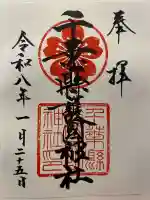 奉拝
千葉縣護国神社
令和八年一月二十五日